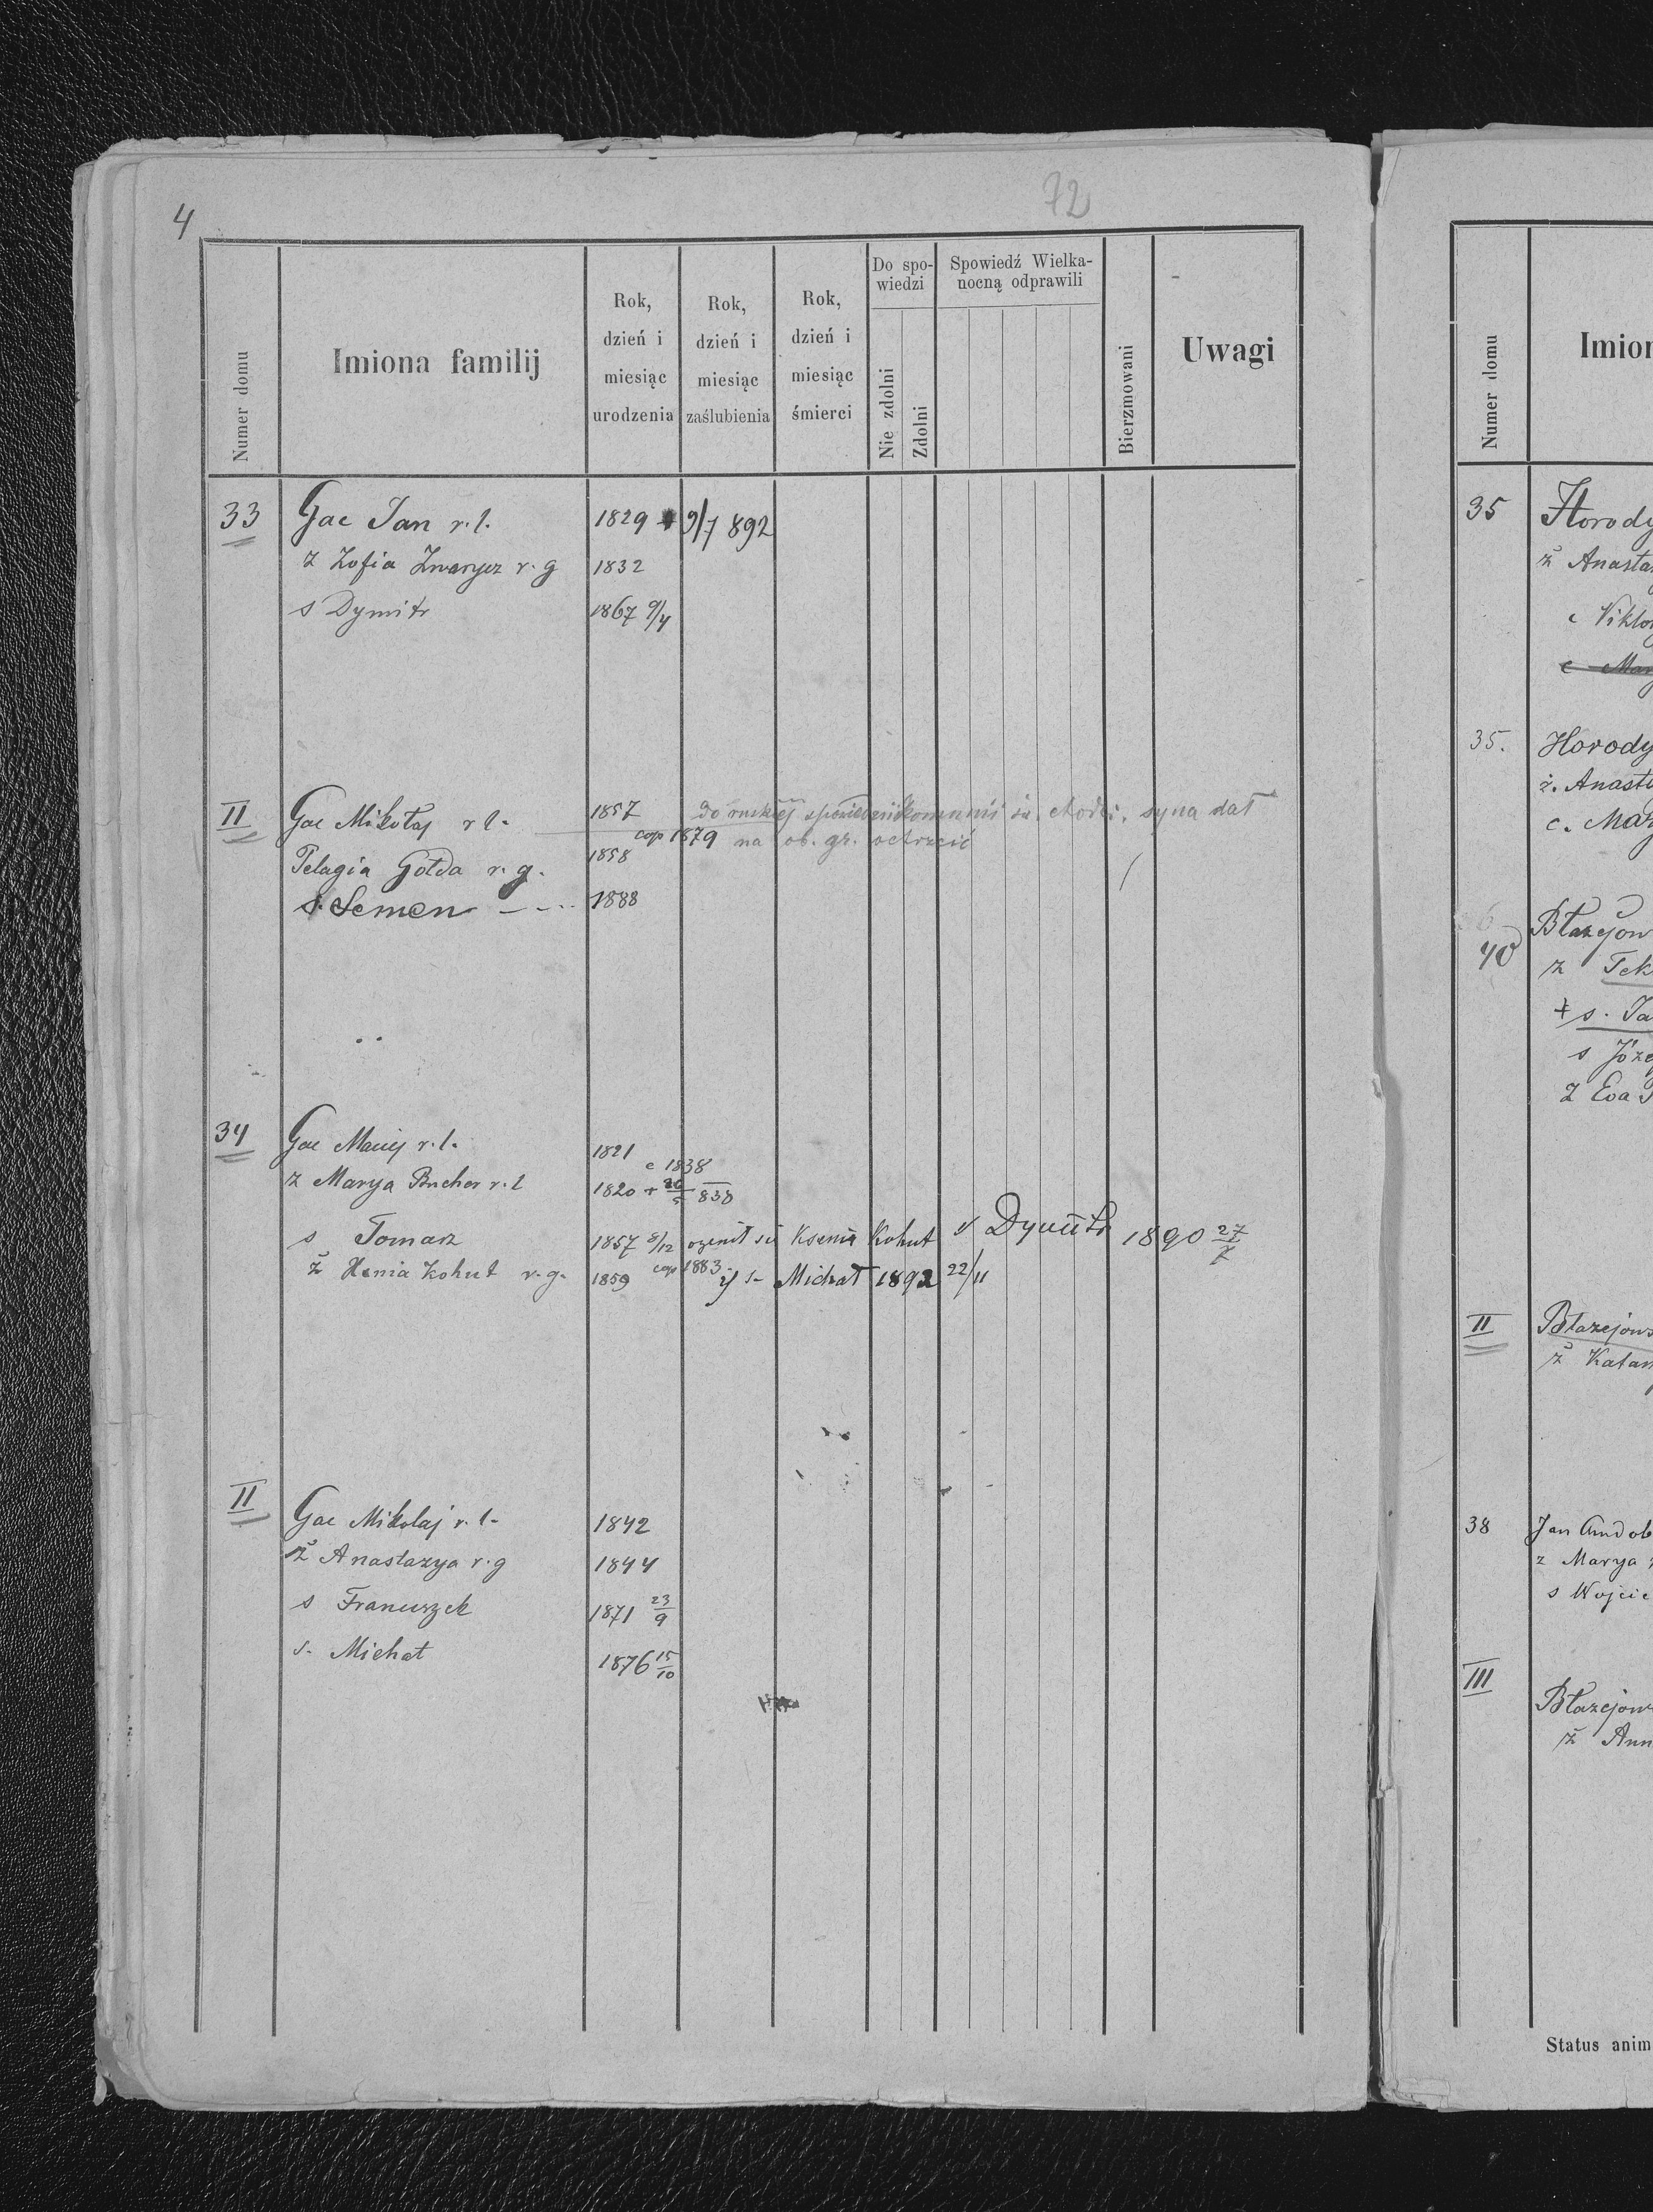 4
72
Numer domu
Imiona familij
Rok, dzień i miesiąc urodzenia
Rok, dzień i miesiąc zaślubienia
Rok, dzień i miesiąc śmierci
Do spo-wiedzi
Nie zdolni
Zdolni
Spowiedź Wielka-nocną odprawili
Bierzmowani
Uwagi
33 Gac Jan r. l. 1829 + 9/7 892
ż Zofia Zwarycz r. g 1832
s Dymitr 1867 9/4
II Gac Mikołaj r l. 1857 do ruskiej spowiedzi i komunii św. chodzi. syna dał
cop 1879 na ob. gr. ochrzcić
Pelagia Gołda r. g. 1858
s. Semen 1888
34 Gac Maciej r. l. 1821
c 1838
ż Marya r. l 1820 + 838
s Tomasz 1857 8/12 ożenił się Ksenia Kohut s Dymitr 1890 27/7
ż Xenia Kohut r. g. 1859 cop 1883 s- Michał 1892 22/11
II Gac Mikolaj r. l- 1842
ż Anastazya r. g 1844
s Franciszek 1871 23/9
s. Michał 1876 15/10
Numer domu
Imion
35 Horody
ż Anasta
c Viktor
c Mary
35. Horody
ż. Anasty
c. Mary
40 Błażejow
ż Tek
+ s. Ja
s Józe
ż Eva
II Błażejows
ż Katar
38 Jan
ż Marya
s Wojcie
III Błażejow
ż Ann
Status anim